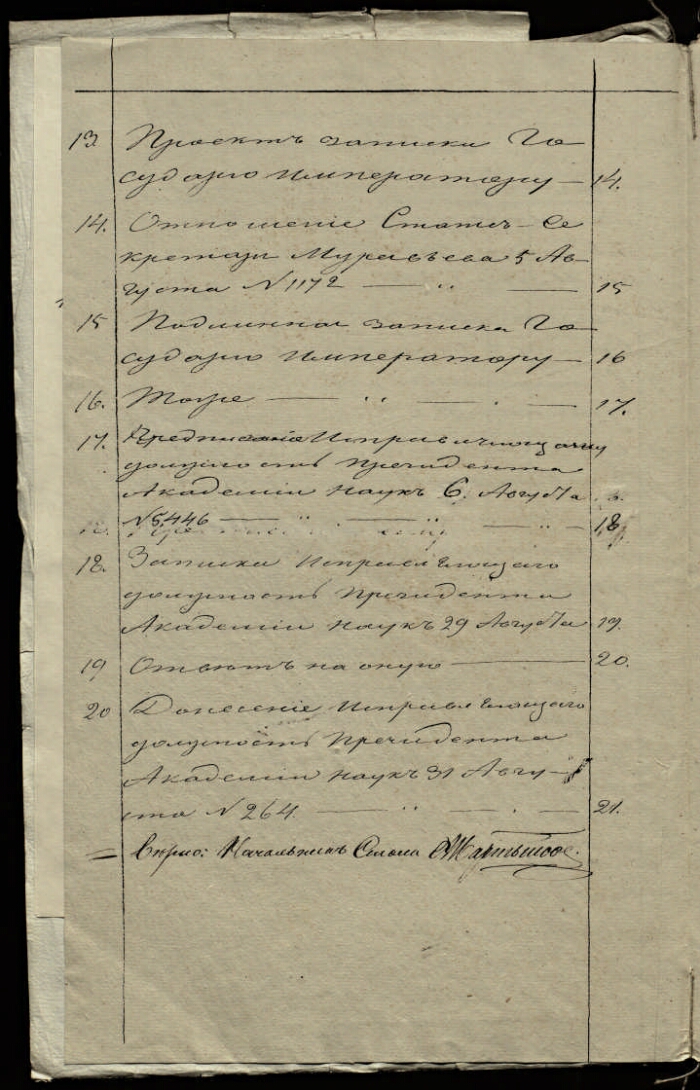 13. Проектъ записки Го-
сударю Императору — 14.
14. Отношеніе Статсъ-Се
кретаря Муравьева 5 Ав-
густа N 1172 — " — 15
15 Подлинная записка Го-
сударю Императору — 16
16. Тоже — " — . — 17.
17. Предписаніе Исправляющему
должность Президента
Академіи Наукъ 6. Августа
N 5446 — " — " — " — 18
18. Записка Исправляющаго
должность Президента
Академіи Наукъ 29 Августа 19.
19 Отвѣтъ на оную — 20.
20 Донесеніе Исправляющаго
должность Президента
Академіи Наукъ 31 Авгу-
ста N 264. — " — . — 21.
Вѣрно: Начальникъ Стола